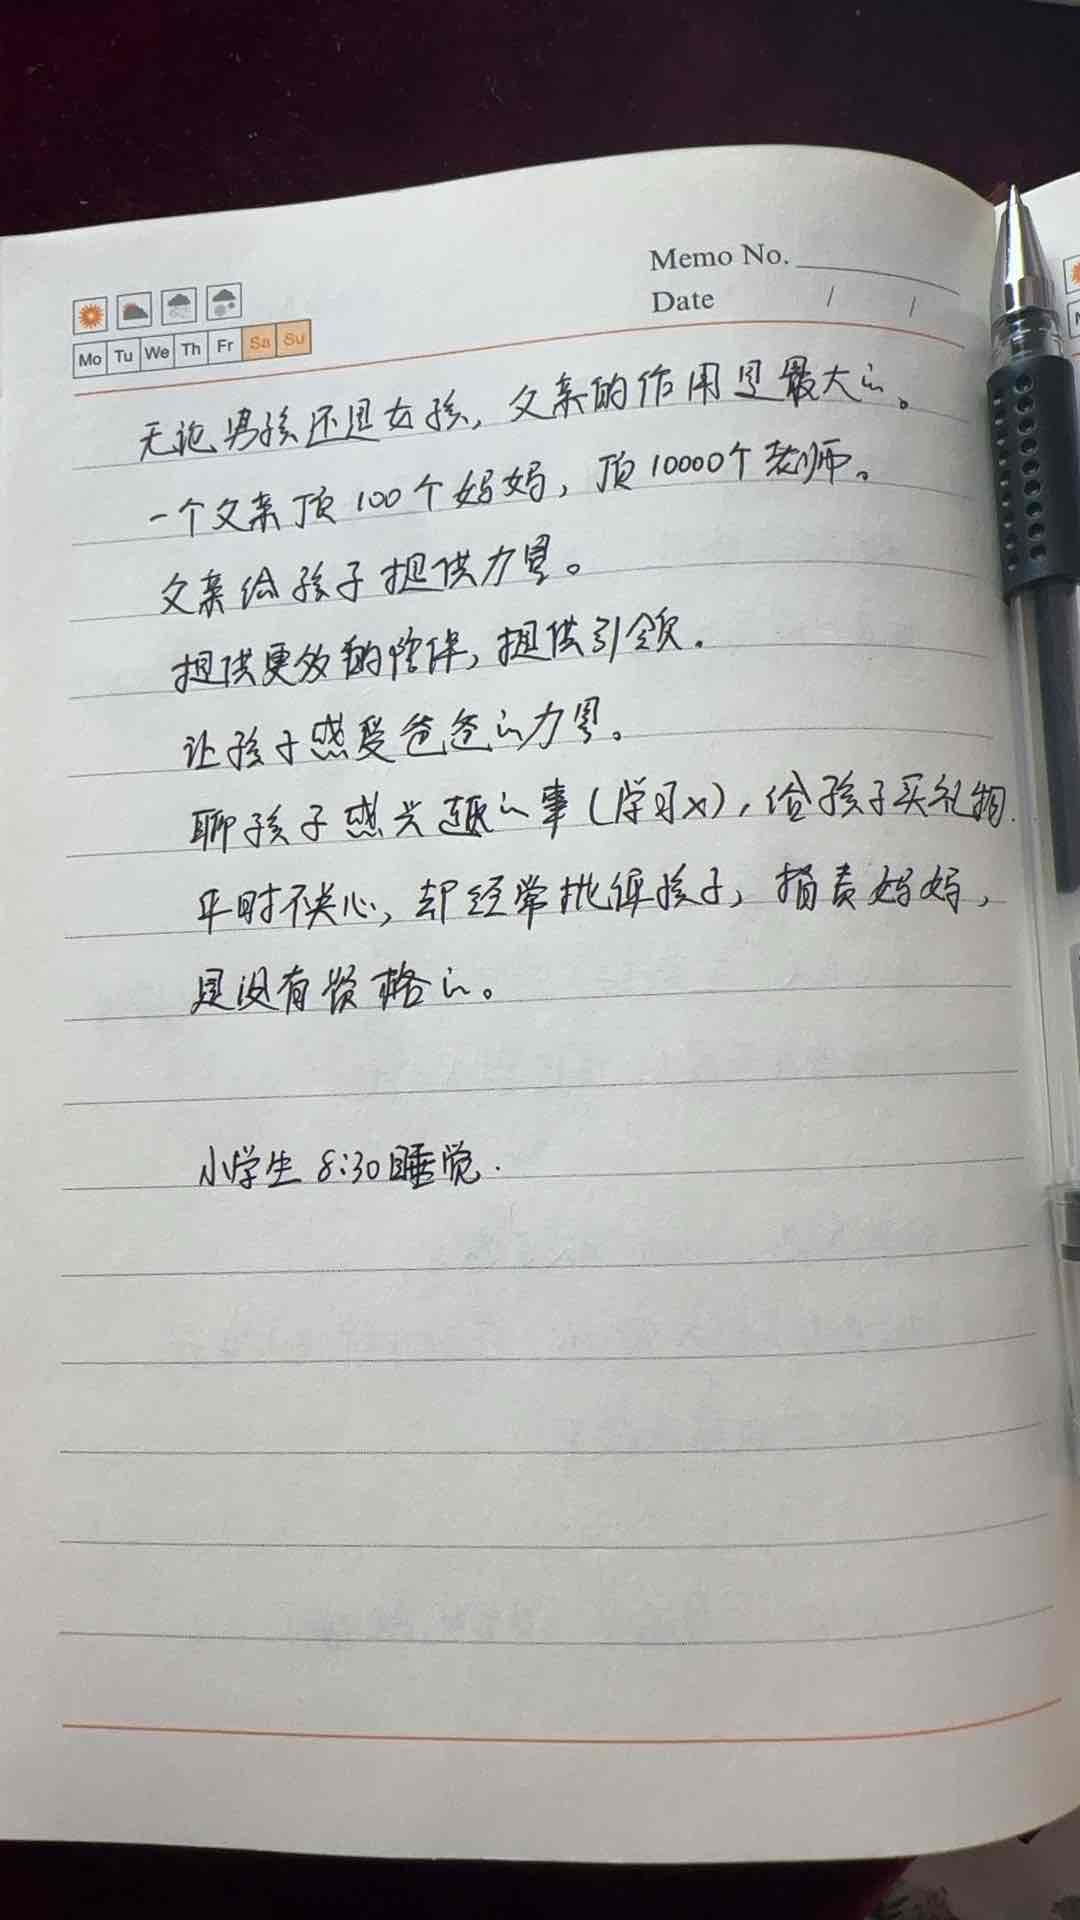 Memo No.
Date / /
Mo Tu We Th Fr Sa Su
无论男孩还是女孩，父亲的作用是最大的。
一个父亲顶100个妈妈，顶10000个老师。
父亲给孩子提供力量。
提供更效的陪伴，提供引领.
让孩子感受爸爸的力量。
聊孩子感兴趣的事(学习x)，给孩子买礼物.
平时不关心，却经常批评孩子，指责妈妈，
是没有资格的。
小学生 8:30睡觉.